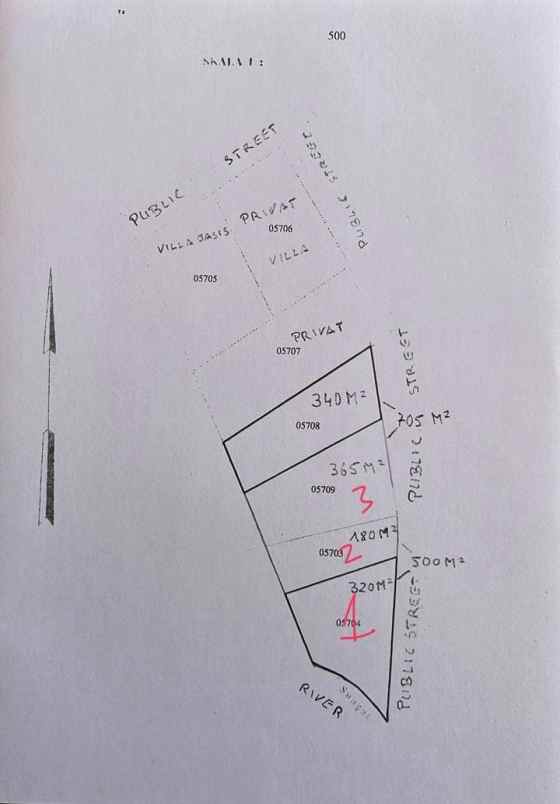 500
SKALA 1:
PUBLIC STREET
PUBLIC STREET
PRIVAT
05706
VILLA
VILLA OASIS
05705
PRIVAT
05707
PUBLIC STREET
340 M²
05708
705 M²
365 M²
05709
3
180 M²
05703
2
500 M²
320 M²
05704
1
PUBLIC STREET
RIVER